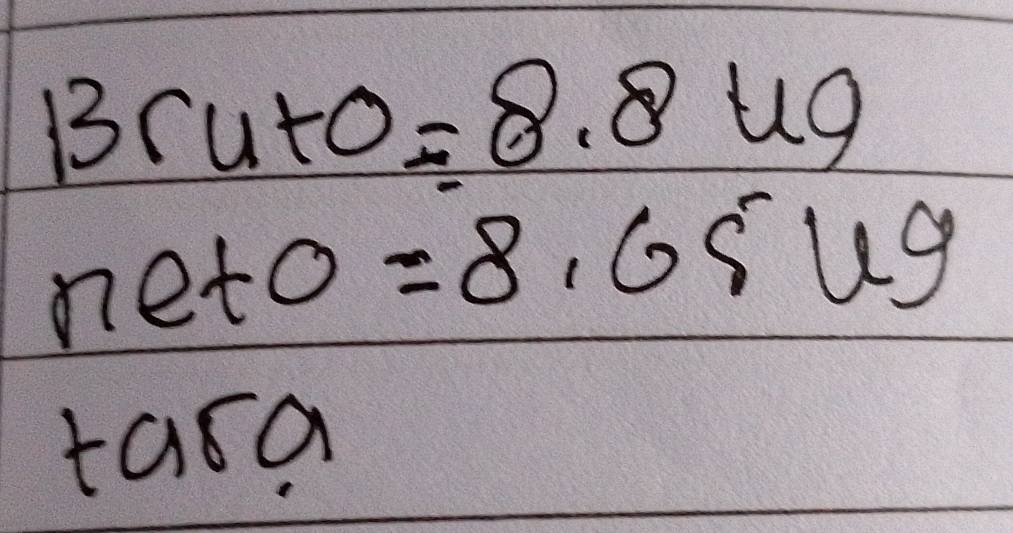 Bruto = 8.8 ug
neto = 8,65 ug
tara